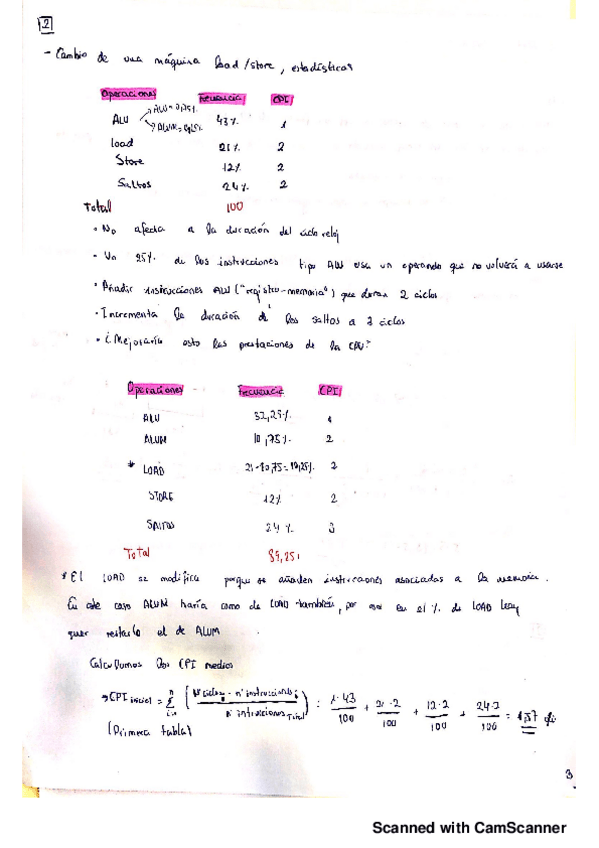 2
- Cambio de una máquina load/store, estadísticas
Operaciones Frecuencia CPI
ALU → ALU = 0,75% → ALUM = 0,25% 43% 1
load 21% 2
Store 12% 2
Saltos 24% 2
Total 100
• No afecta a la duración del ciclo reloj
• Un 25% de las instrucciones tipo ALU usa un operando que no volverá a usarse
• Añadir instrucciones ALU ("registro-memoria") que duran 2 ciclos
• Incrementa la duración de los saltos a 3 ciclos
• ¿Mejoraría esto las prestaciones de la CPU?
Operaciones Frecuencia CPI
ALU 32,25% 1
ALUM 10,75% 2
* LOAD 21-10,75 = 10,25% 2
STORE 12% 2
SALTOS 24% 3
Total 89,25
* El LOAD se modifica porque se añaden instrucciones asociadas a la memoria.
En este caso ALUM haría como de LOAD también, por eso en el % de LOAD hay
que restarlo el de ALUM
Calculamos los CPI medios
→ CPI inicial = Σ i=1 n ( Nº ciclos i · nº instrucciones i / nº instrucciones Total ) = 1·43/100 + 21·2/100 + 12·2/100 + 24·2/100 = 1,57
(Primera tabla)
3
Scanned with CamScanner